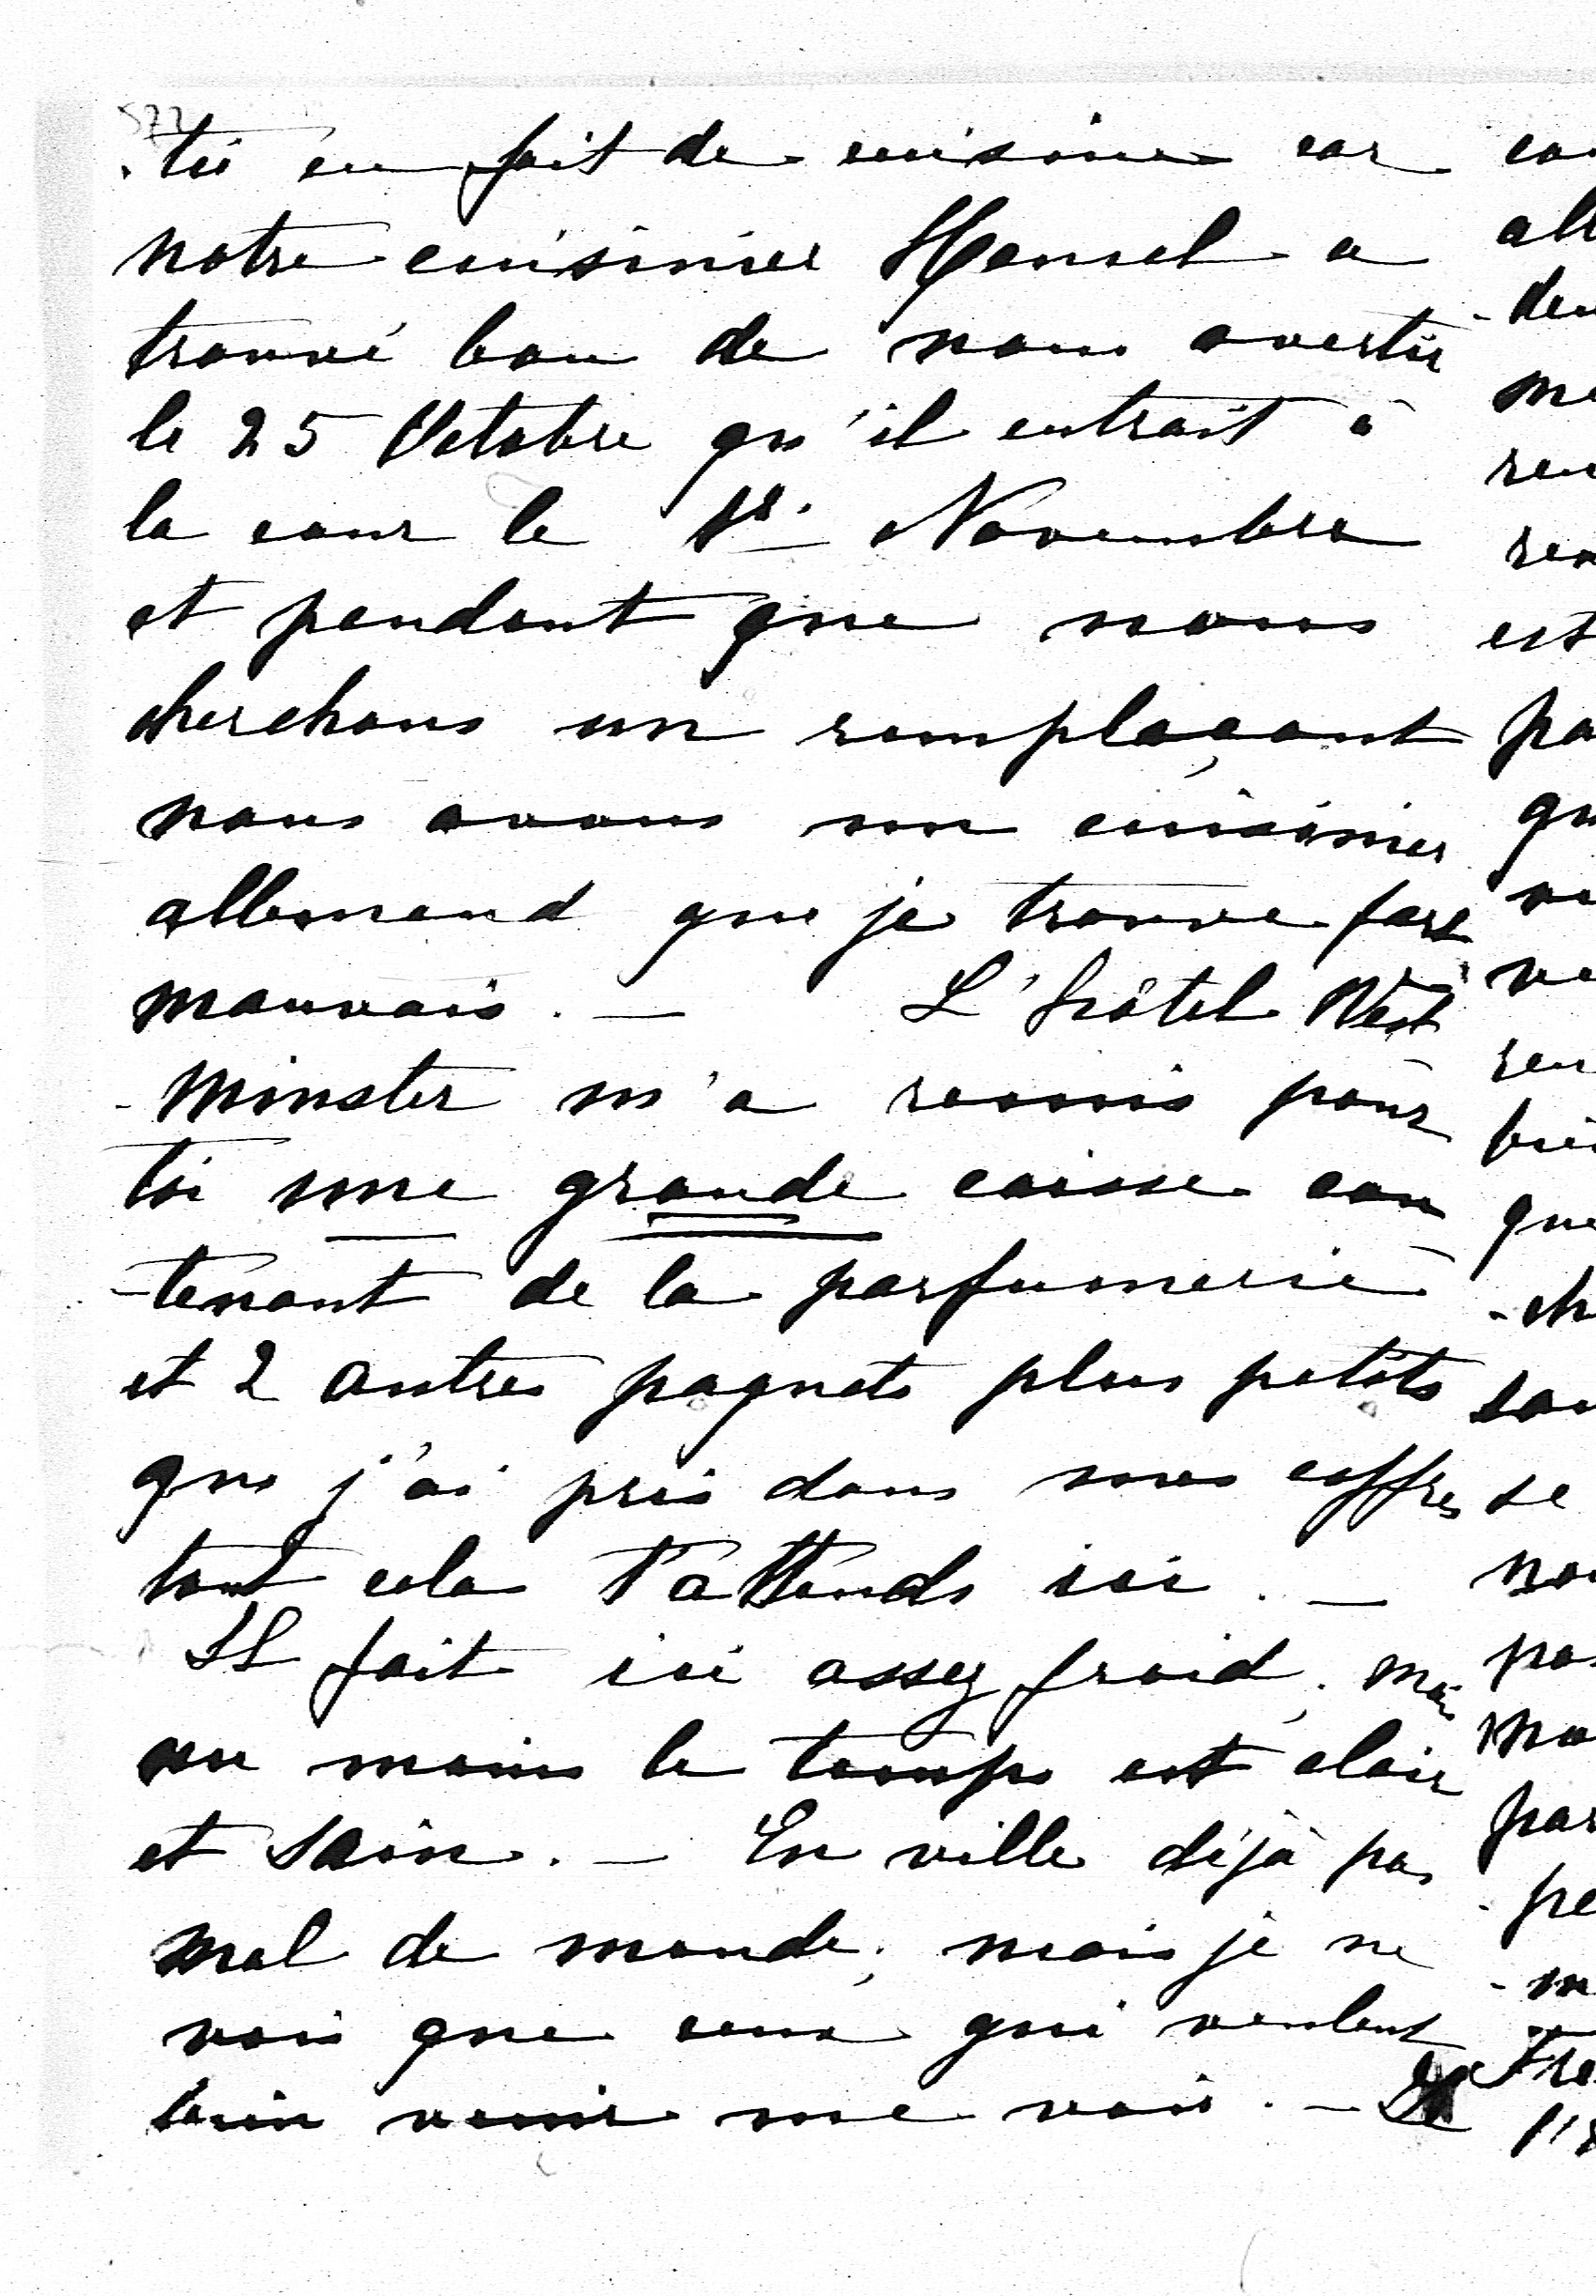 572
-tir en fait de cuisine car
notre cuisinier Hansel a
trouvé bon de nous avertir
le 25 Octobre qu'il entrait à
la cour le 1r. Novembre
et pendant que nous
cherchons un remplaçant
nous avons un cuisinier
allemand que je trouve fort
mauvais. — L'hôtel West
-minster m'a remis pour
toi une grande caisse con
-tenant de la parfumerie
et 2 autres paquets plus petits
que j'ai pris dans mes coffres
tout cela t'attends ici. —
Il fait ici assez froid, mais
au moins le temps est clair
et sain. — En ville déjà pas
mal de monde; mais je ne
vois que ceux qui veulent
bien venir me voir. —